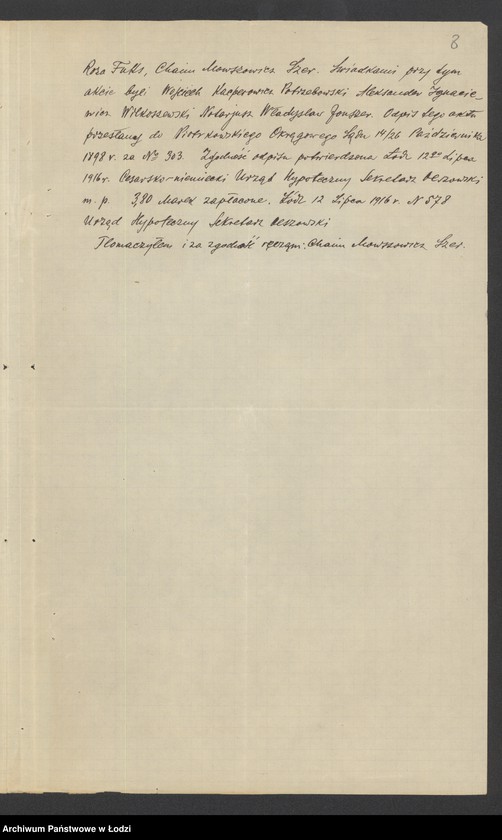 8
Roza Fuks, Chaim Mowszowicz Szer. Świadkami przy tym
akcie byli Wojciech Kacperowicz Potrzebowski Aleksander Ignace-
wicz Wilkoszewski Notarjusz Władysław Jonszer. Odpis tego aktu
przesłany do Piotrkowskiego Okręgowego Sądu 14/26 Października
1898 r. za No 303. Zgodność odpisu potwierdzona Łódź 12go Lipca
1916 r. Cesarsko-niemiecki Urząd Hypoteczny Sekretarz Olszowski
m. p. 3,80 Marek zapłacone. Łódź 12 Lipca 1916 r. N 578
Urząd Hypoteczny Sekretarz Olszowski
Tłomaczyłem i za zgodność ręczam: Chaim Mowszowicz Szer.
Archiwum Państwowe w Łodzi